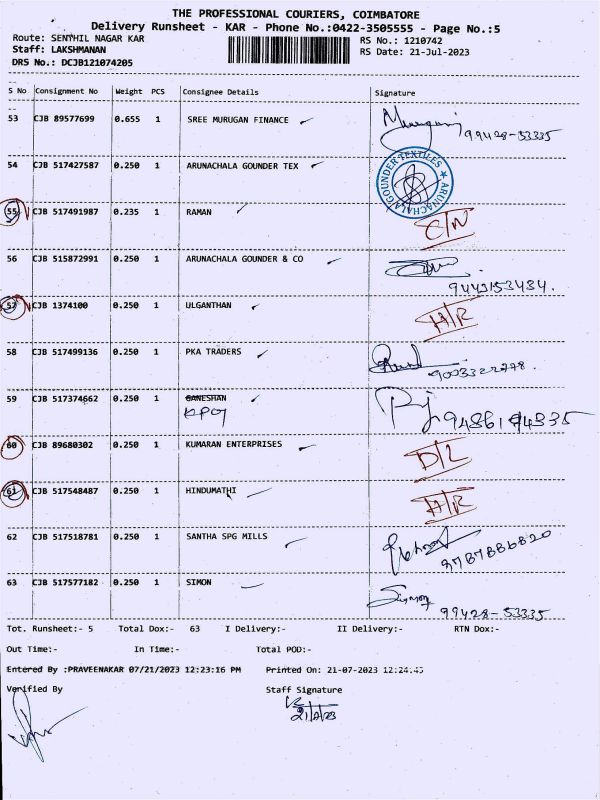 THE PROFESSIONAL COURIERS, COIMBATORE
Delivery Runsheet - KAR - Phone No.:0422-3505555 - Page No.:5
Route: SENTHIL NAGAR KAR
RS No.: 1210742
Staff: LAKSHMANAN
RS Date: 21-Jul-2023
DRS No.: DCJB121074205
S No Consignment No Weight PCS Consignee Details Signature
53 CJB 89577699 0.655 1 SREE MURUGAN FINANCE Murugan
99428-53335
54 CJB 517427587 0.250 1 ARUNACHALA GOUNDER TEX
ARUNACHALA GOUNDER TEXTILES
55 CJB 517491987 0.235 1 RAMAN C/N
56 CJB 515872991 0.250 1 ARUNACHALA GOUNDER & CO
9443153484.
57 CJB 1374100 0.250 1 ULGANTHAN H/R
58 CJB 517499136 0.250 1 PKA TRADERS
9003322778.
59 CJB 517374662 0.250 1 GANESHAN
9486194335
60 CJB 89680302 0.250 1 KUMARAN ENTERPRISES D/L
61 CJB 517548487 0.250 1 HINDUMATHI H/R
62 CJB 517518781 0.250 1 SANTHA SPG MILLS
9787886820
63 CJB 517577182 0.250 1 SIMON Simon
99428-53335
Tot. Runsheet:- 5 Total Dox:- 63 I Delivery:- II Delivery:- RTN Dox:-
Out Time:- In Time:- Total POD:-
Entered By :PRAVEENAKAR 07/21/2023 12:23:16 PM Printed On: 21-07-2023 12:24:45
Verified By Staff Signature